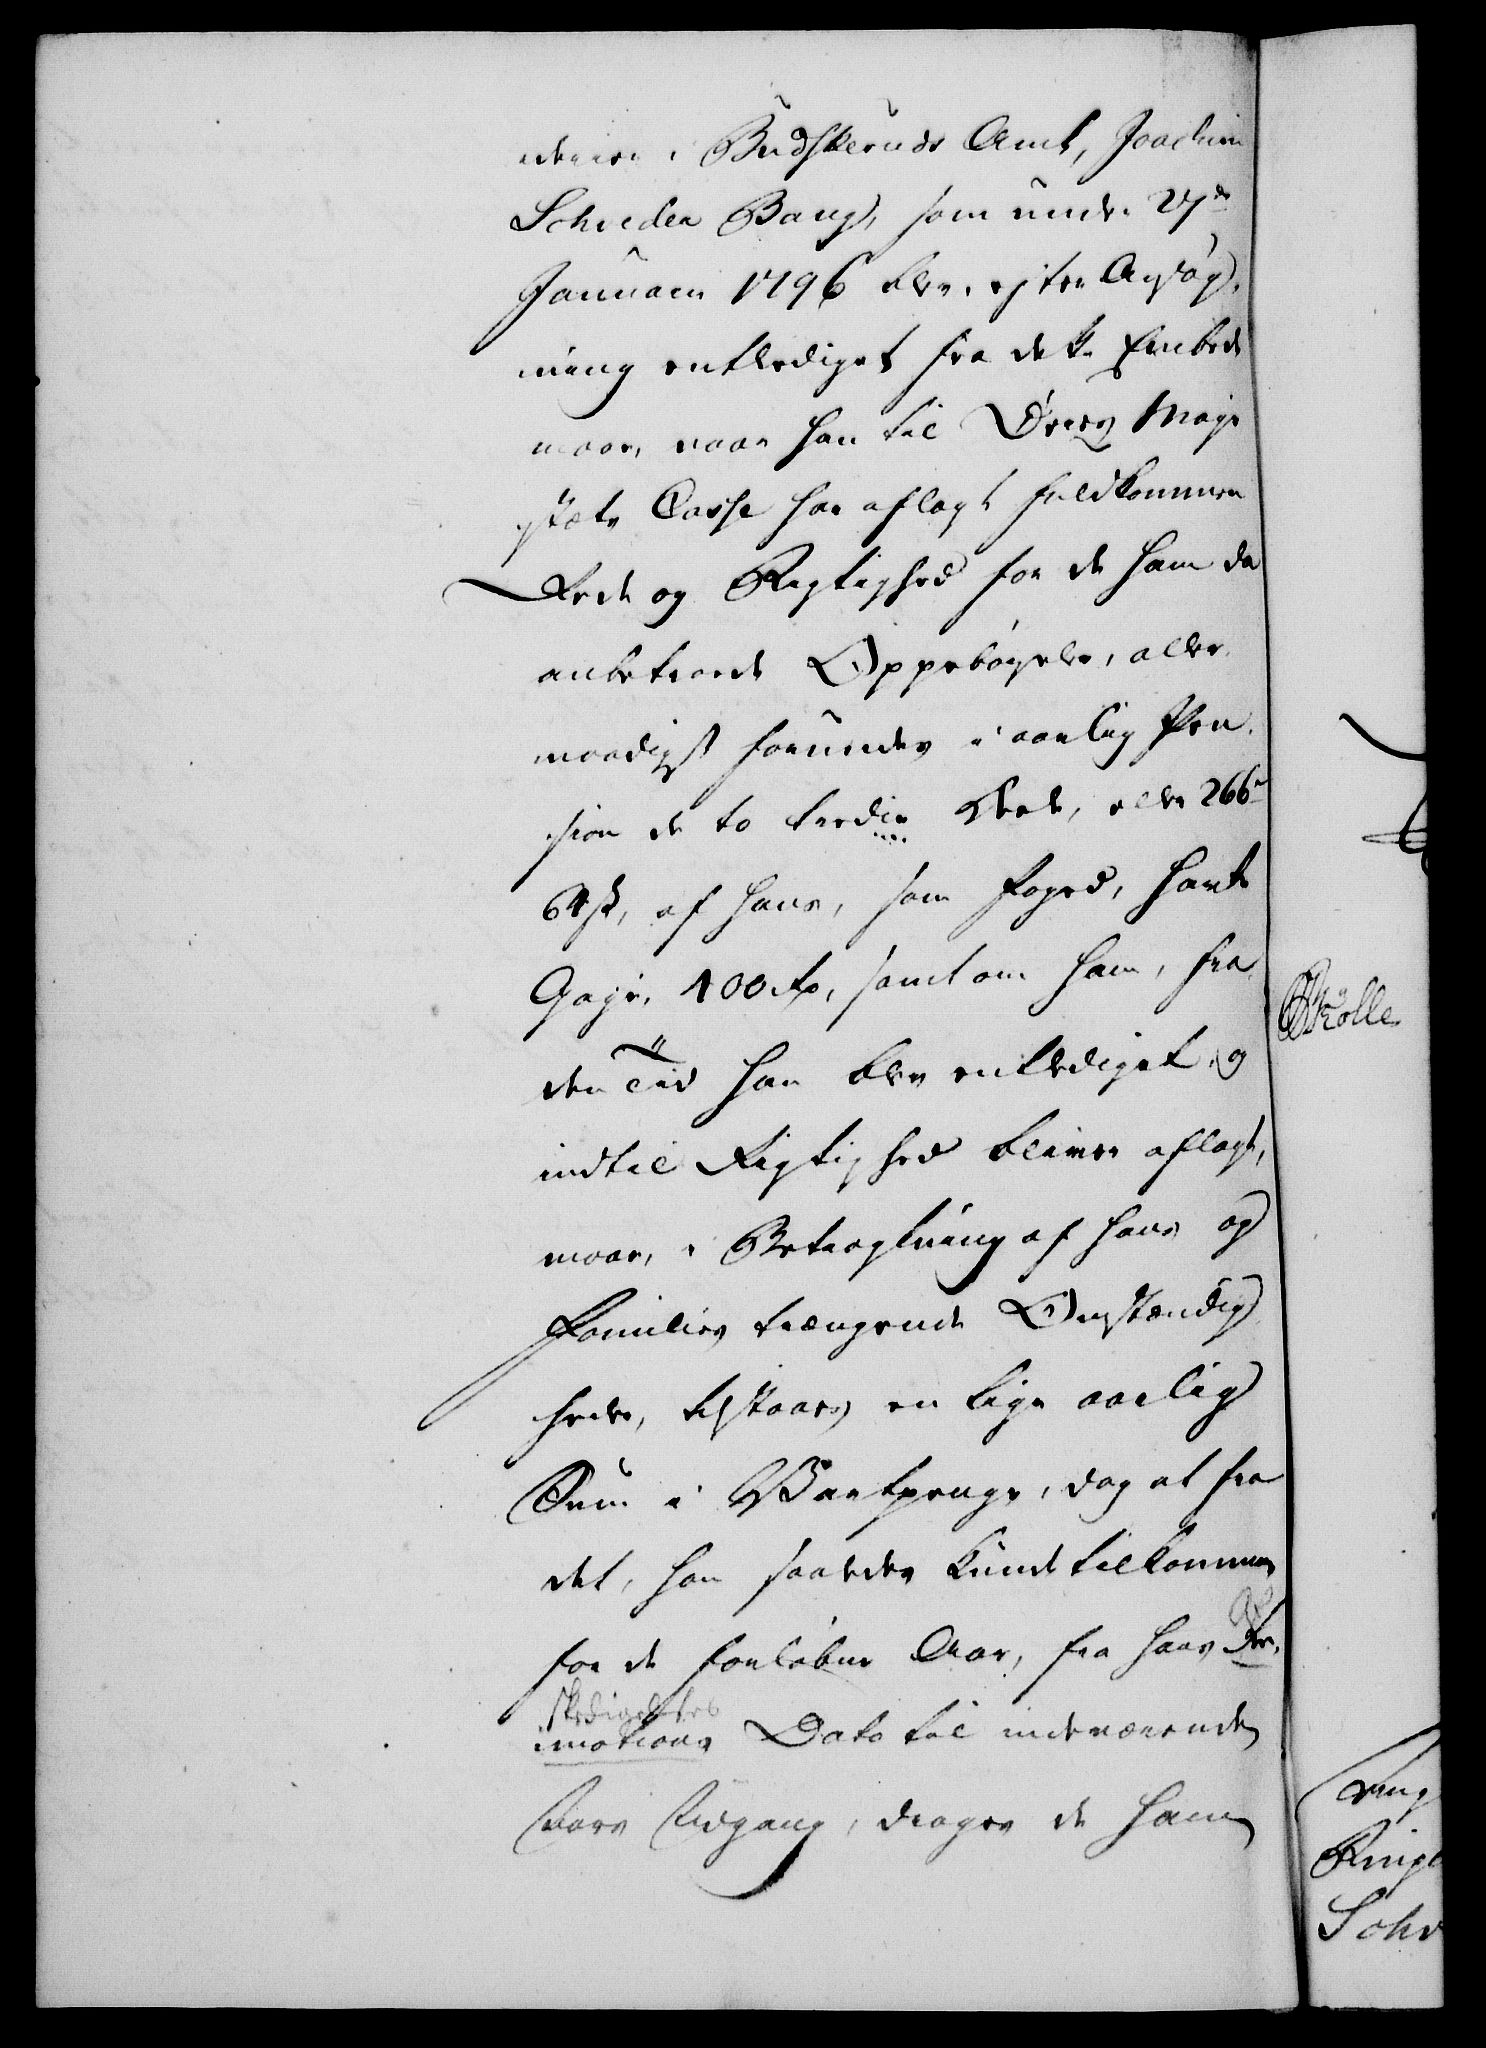 i Budskeruds Amt, Joachim
Schreder Bang, som under 27de
Januarii 1796 blev, efter Ansøg-
ning entlediget fra dette Embede
maae, naar han til Deres Maje-
stæts Casse har aflagt fuldkommen
Rede og Rigtighed for de ham da
anbetroede Oppebørseler, aller-
naadigst forundes i aarlig Pen-
sion de to tredie Deele, eller 266 rd
64 ß, af hans, som Foged, havte
Gage, 400 rd, samt om ham, fra
den Tid han blev entlediget og
indtil Rigtighed bliver aflagt,
maae, i Betragtning af hans og
Families trængende Omstændig-
heder, tilstaaes en lige aarlig
Sum i Vartpenge, dog at fra
det, han saaledes kunde tilkomme
for de forløbne Aar, fra hans Di-
skedigelses
imotions Dato til indeværende
Aars Udgang, drages de ham
Kolle
Ringe
Schr